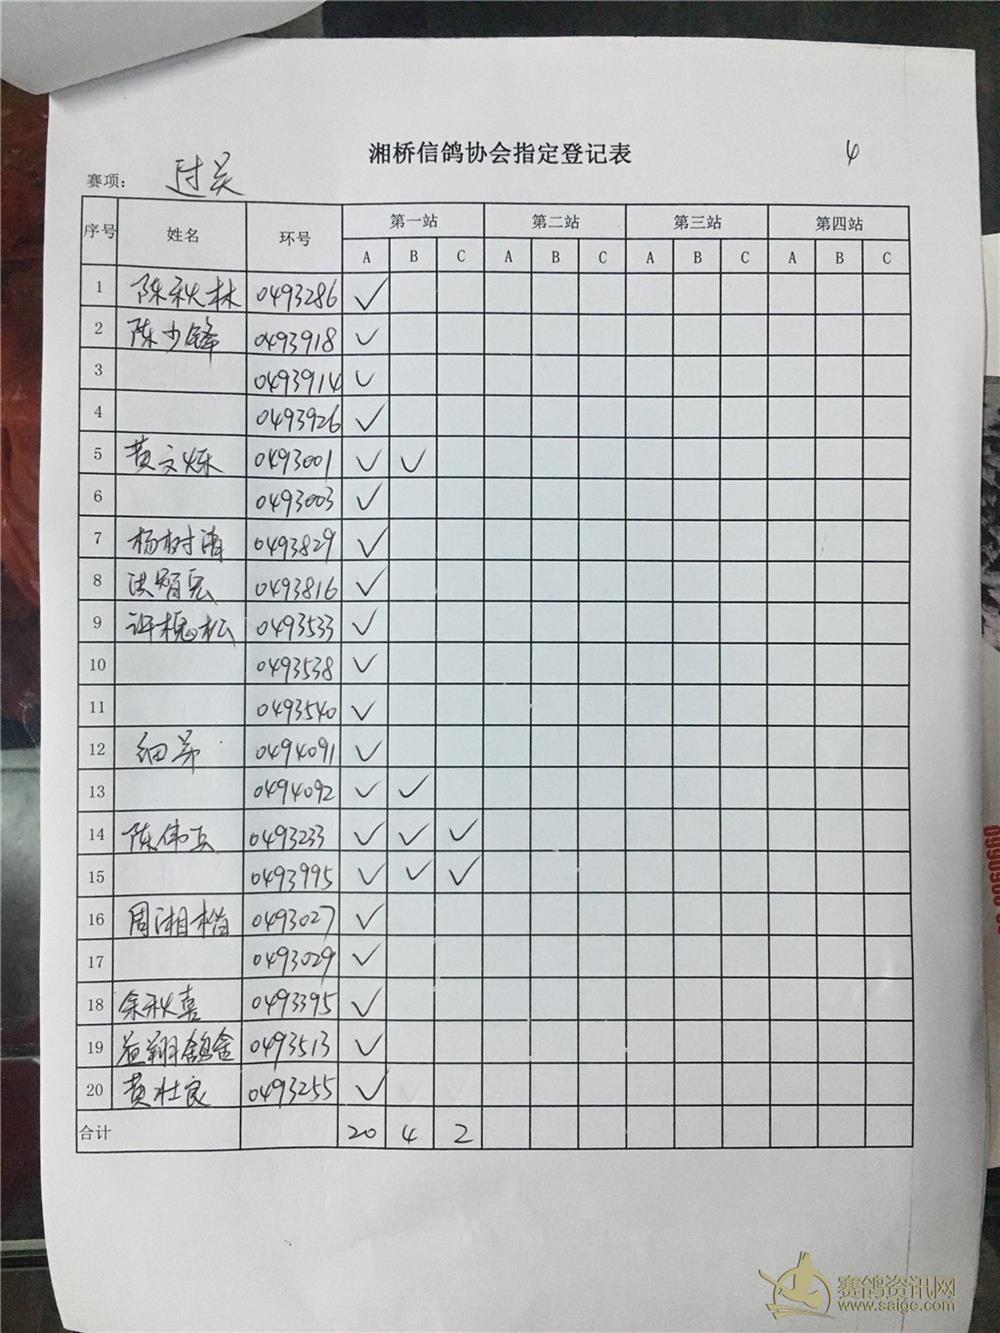 湘桥信鸽协会指定登记表 4
赛项: 过关
序号 姓名 环号 第一站 第二站 第三站 第四站
A B C A B C A B C A B C
1 陈秋林 0493286 ✓
2 陈少锋 0493918 ✓
3 0493914 ✓
4 0493926 ✓
5 黄文烁 0493001 ✓ ✓
6 0493003 ✓
7 杨树 0493829 ✓
8 洪 0493816 ✓
9 许槐松 0493533 ✓
10 0493538 ✓
11 0493540 ✓
12 细弟 0494091 ✓
13 0494092 ✓ ✓
14 陈伟 0493233 ✓ ✓ ✓
15 0493995 ✓ ✓ ✓
16 周湘楷 0493027 ✓
17 0493029 ✓
18 余秋喜 0493395 ✓
19 益翔鸽舍 0493513 ✓
20 黄壮良 0493255 ✓
合计 20 4 2
赛鸽资讯网
www.saigc.com